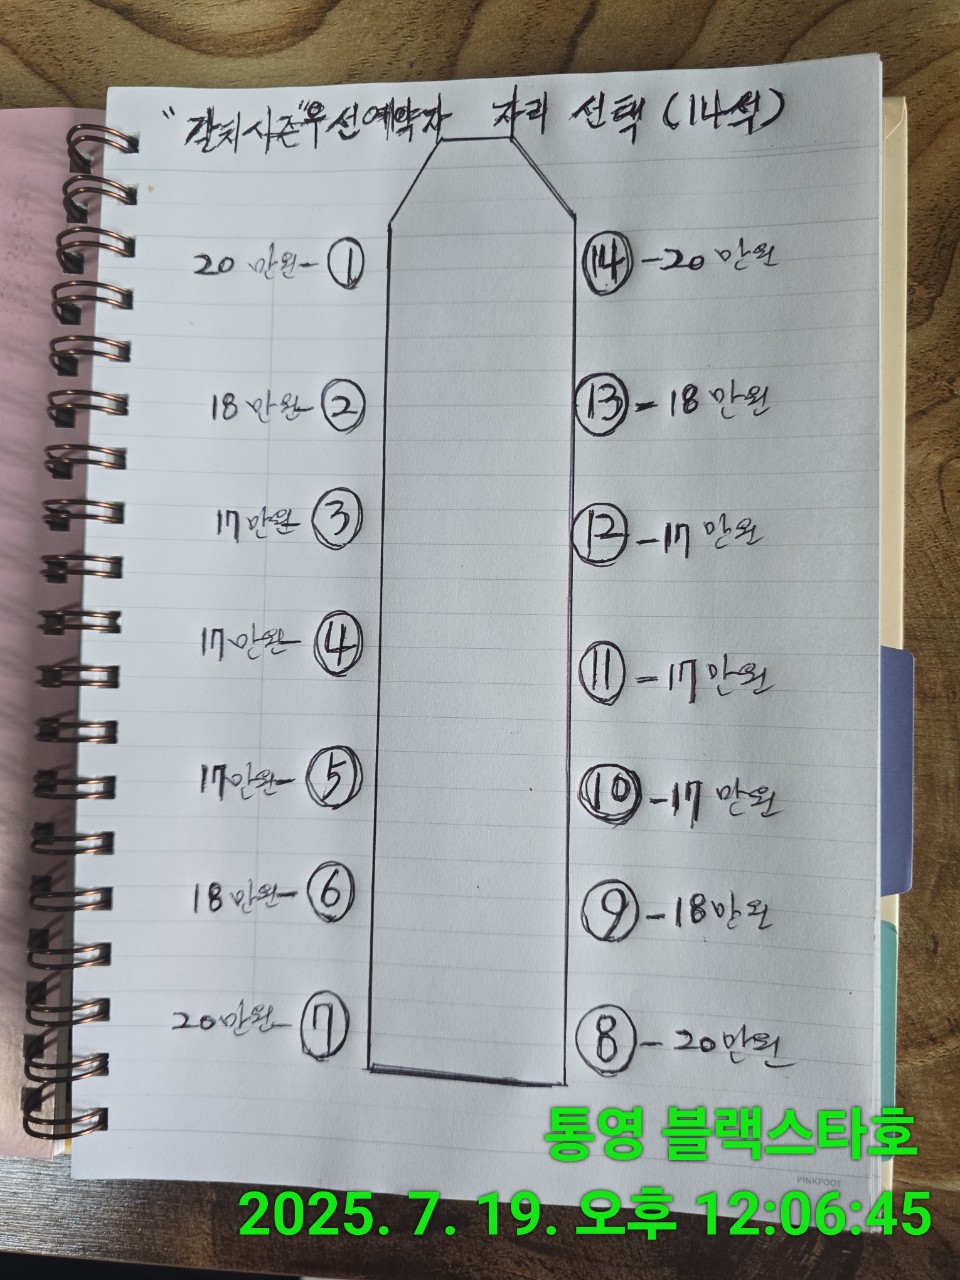 "갈치시즌"우선예약자 자리 선택 (14석)
20만원-① ⑭-20만원
18만원-② ⑬-18만원
17만원-③ ⑫-17만원
17만원-④ ⑪-17만원
17만원-⑤ ⑩-17만원
18만원-⑥ ⑨-18만원
20만원-⑦ ⑧-20만원
통영 블랙스타호
PINKFOOT
2025. 7. 19. 오후 12:06:45